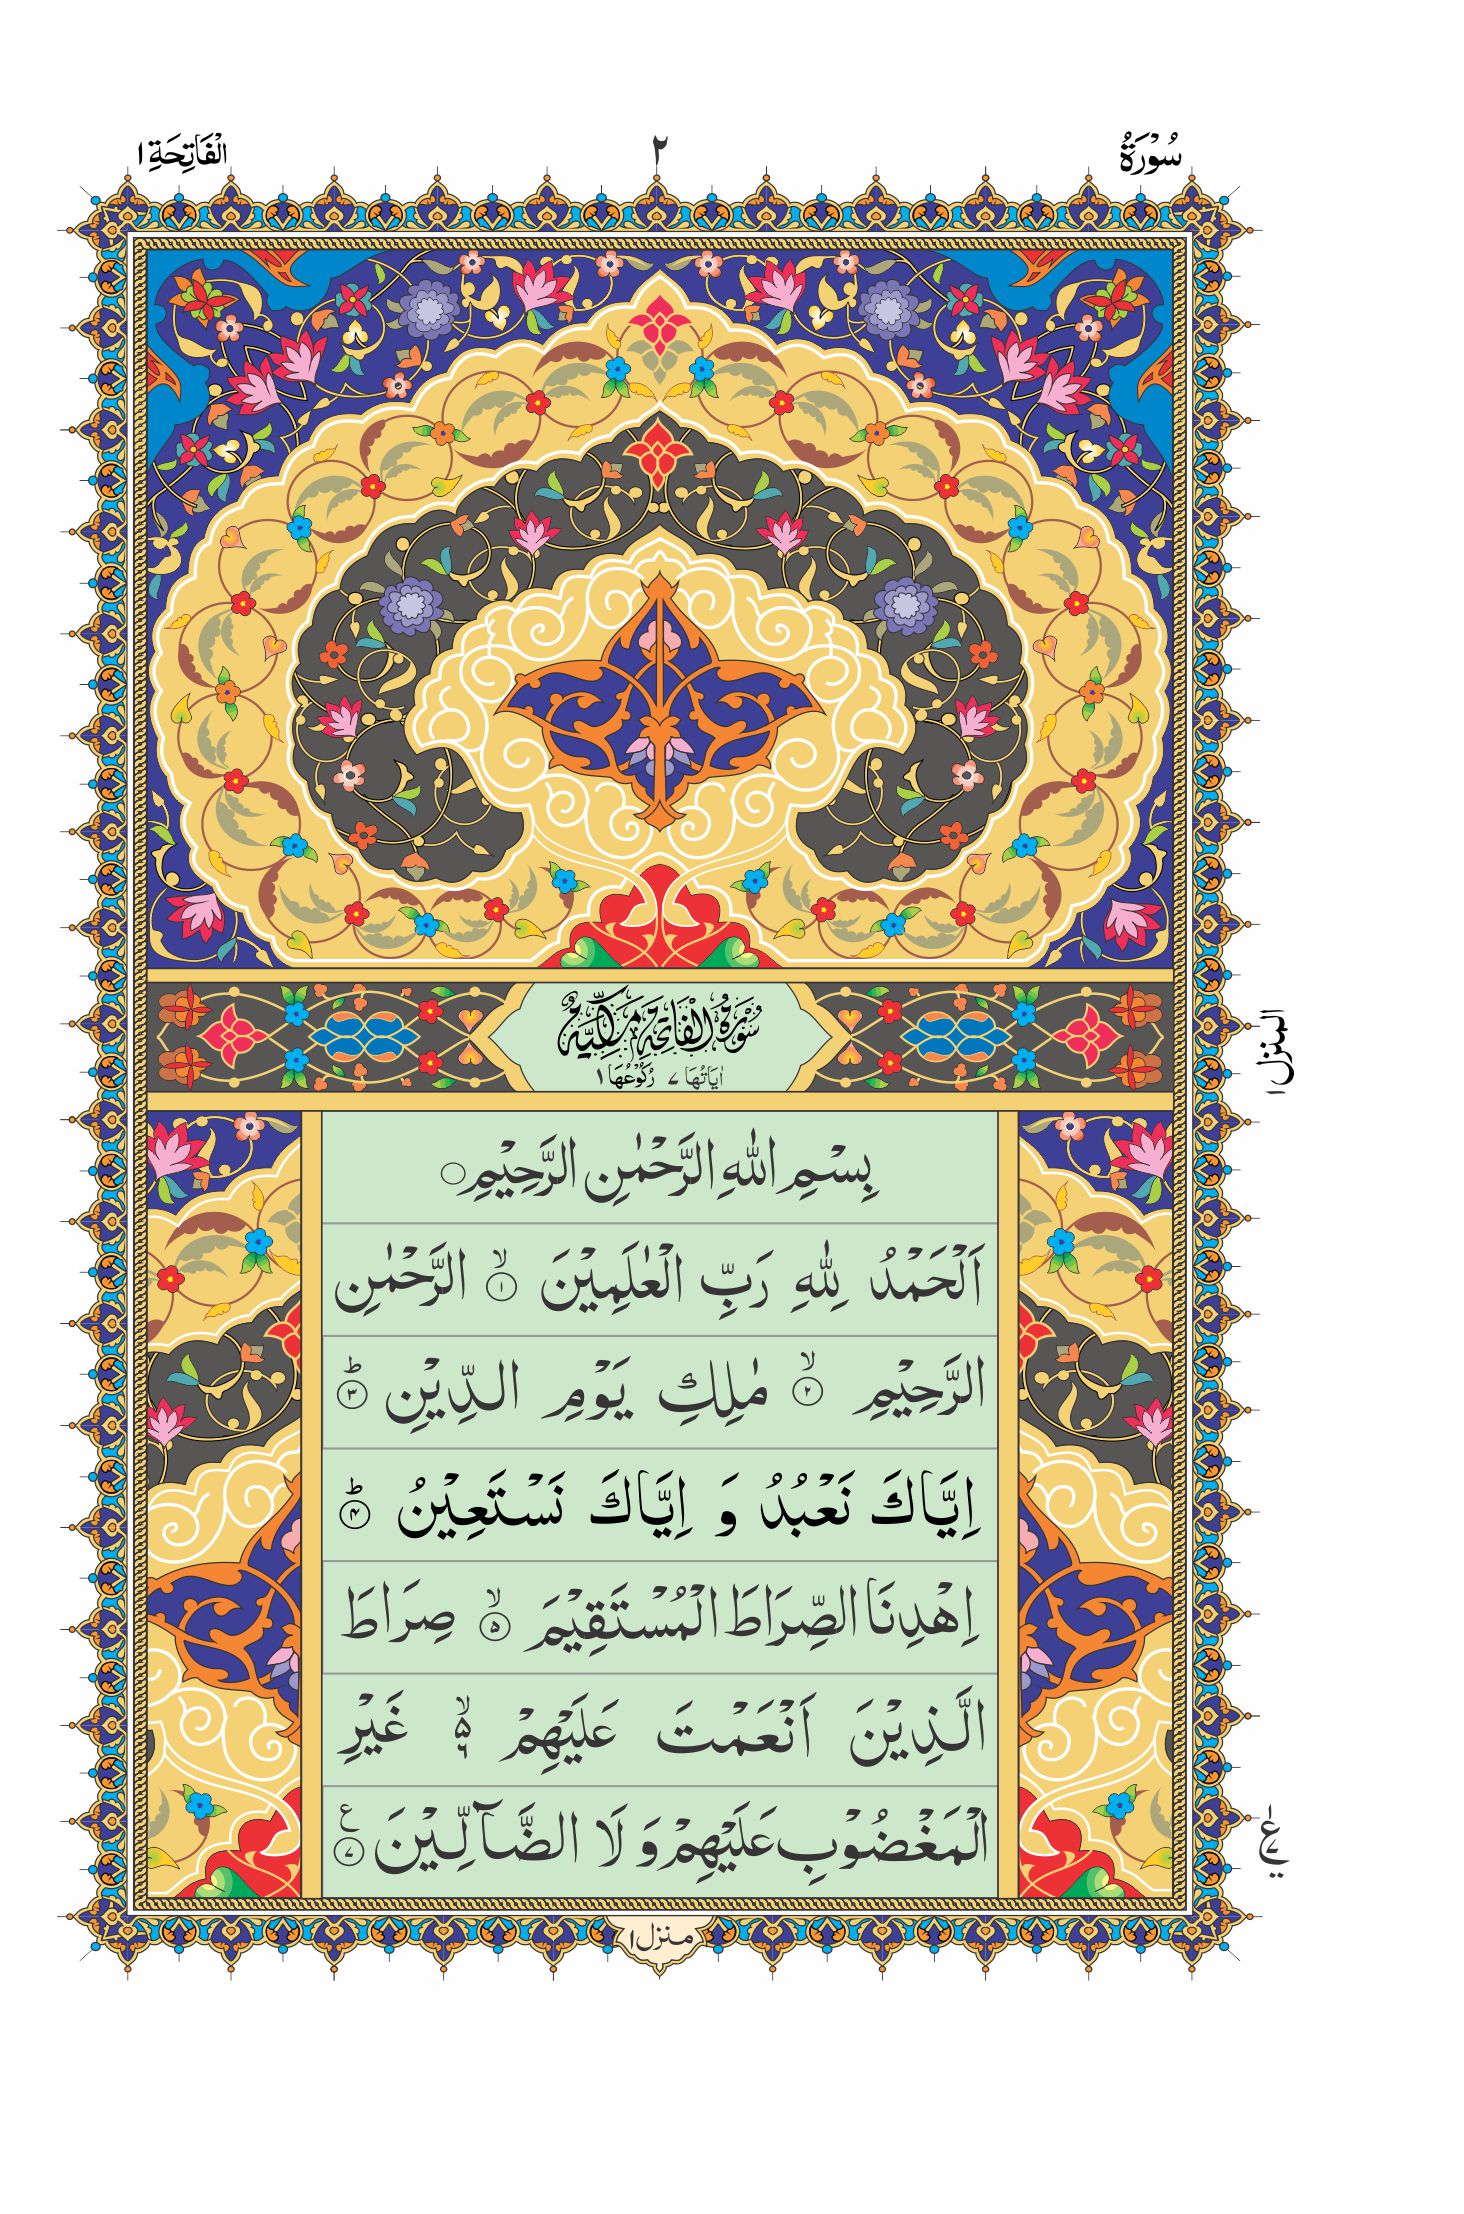 سُوْرَةُ ٢ الْفَاتِحَةِ ١
سُوْرَةُ الْفَاتِحَةِ مَكِّيَّةٌ
اٰيَاتُهَا ٧ رُكُوْعُهَا ١
المنزل ١
بِسْمِ اللّٰهِ الرَّحْمٰنِ الرَّحِيْمِ ○
اَلْحَمْدُ لِلّٰهِ رَبِّ الْعٰلَمِيْنَ ۙ﴿۱﴾ الرَّحْمٰنِ
الرَّحِيْمِ ۙ﴿۲﴾ مٰلِكِ يَوْمِ الدِّيْنِ ؕ﴿۳﴾
اِيَّاكَ نَعْبُدُ وَ اِيَّاكَ نَسْتَعِيْنُ ؕ﴿۴﴾
اِهْدِنَا الصِّرَاطَ الْمُسْتَقِيْمَ ۙ﴿۵﴾ صِرَاطَ
الَّذِيْنَ اَنْعَمْتَ عَلَيْهِمْ ۙ۵ ۶ غَيْرِ
الْمَغْضُوْبِ عَلَيْهِمْ وَ لَا الضَّآلِّيْنَ ﴿۷﴾ ع
منزل ١